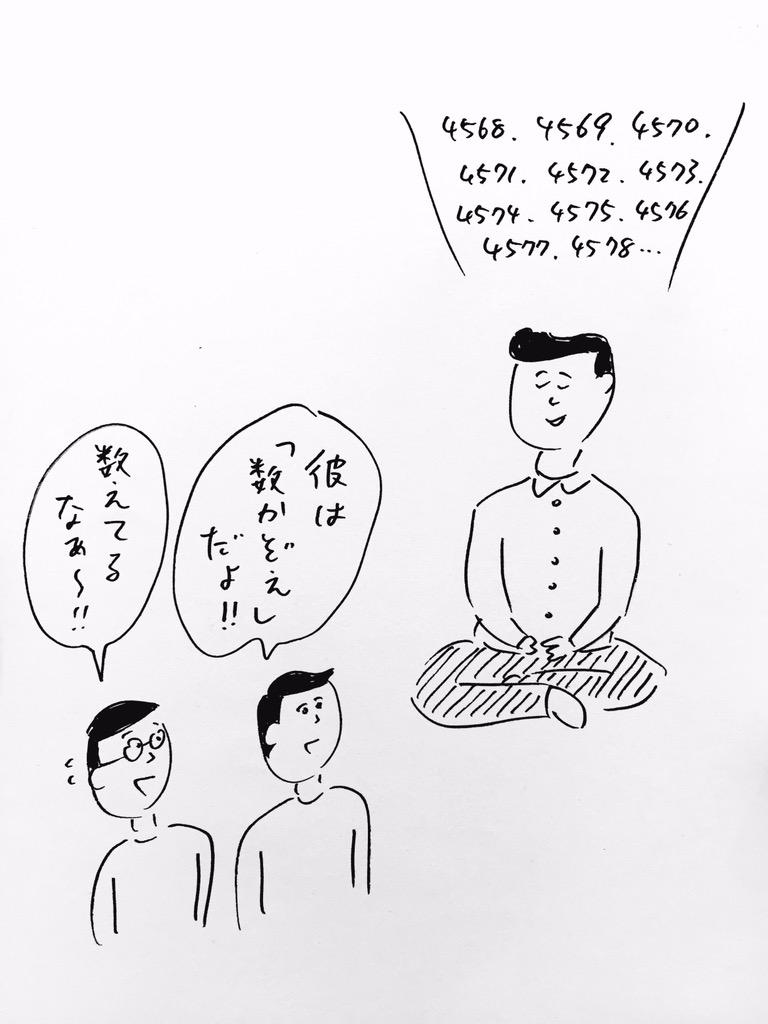 4568. 4569. 4570.
4571. 4572. 4573.
4574. 4575. 4576
4577. 4578…
彼は
「数かぞえし
だよ!!
数えてる
なぁ〜!!